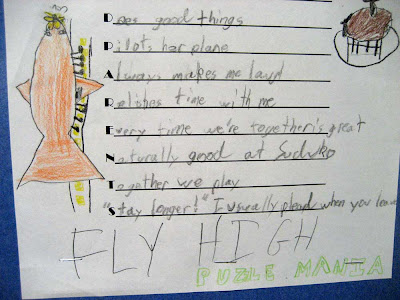 Does good things
Pilots her plane
Always makes me laugh
Relishes time with me
Every time we're together is great
Naturally good at Suduko
Together we play
"Stay longer!" I usually plead when you leave
FLY HIGH
PUZLE MANIA